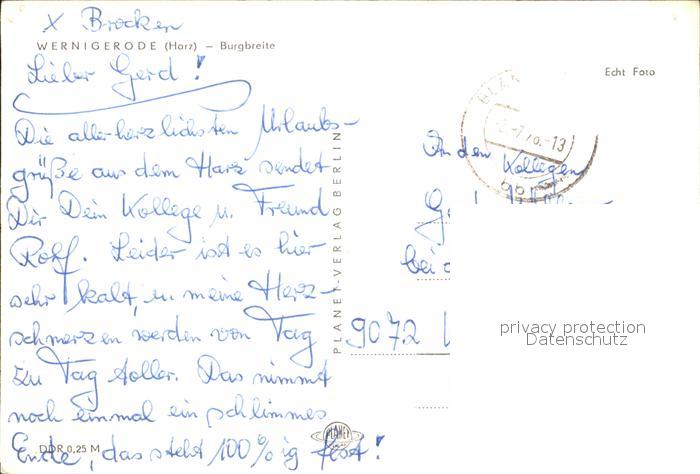 x Brocken
WERNIGERODE (Harz) – Burgbreite
Lieber Gerd!
Die allerherzlichsten Urlaubs-
grüße aus dem Harz sendet
Dir Dein Kollege u. Freund
Rolf. Leider ist es hier
sehr kalt, u. meine Herz-
schmerzen werden von Tag
zu Tag toller. Das nimmt
noch einmal ein schlimmes
Ende, das steht 100%ig fest!
DDR 0,25 M
PLANET
PLANET-VERLAG BERLIN
Echt Foto
-13
An den Kollegen
bei
9072
privacy protection
Datenschutz